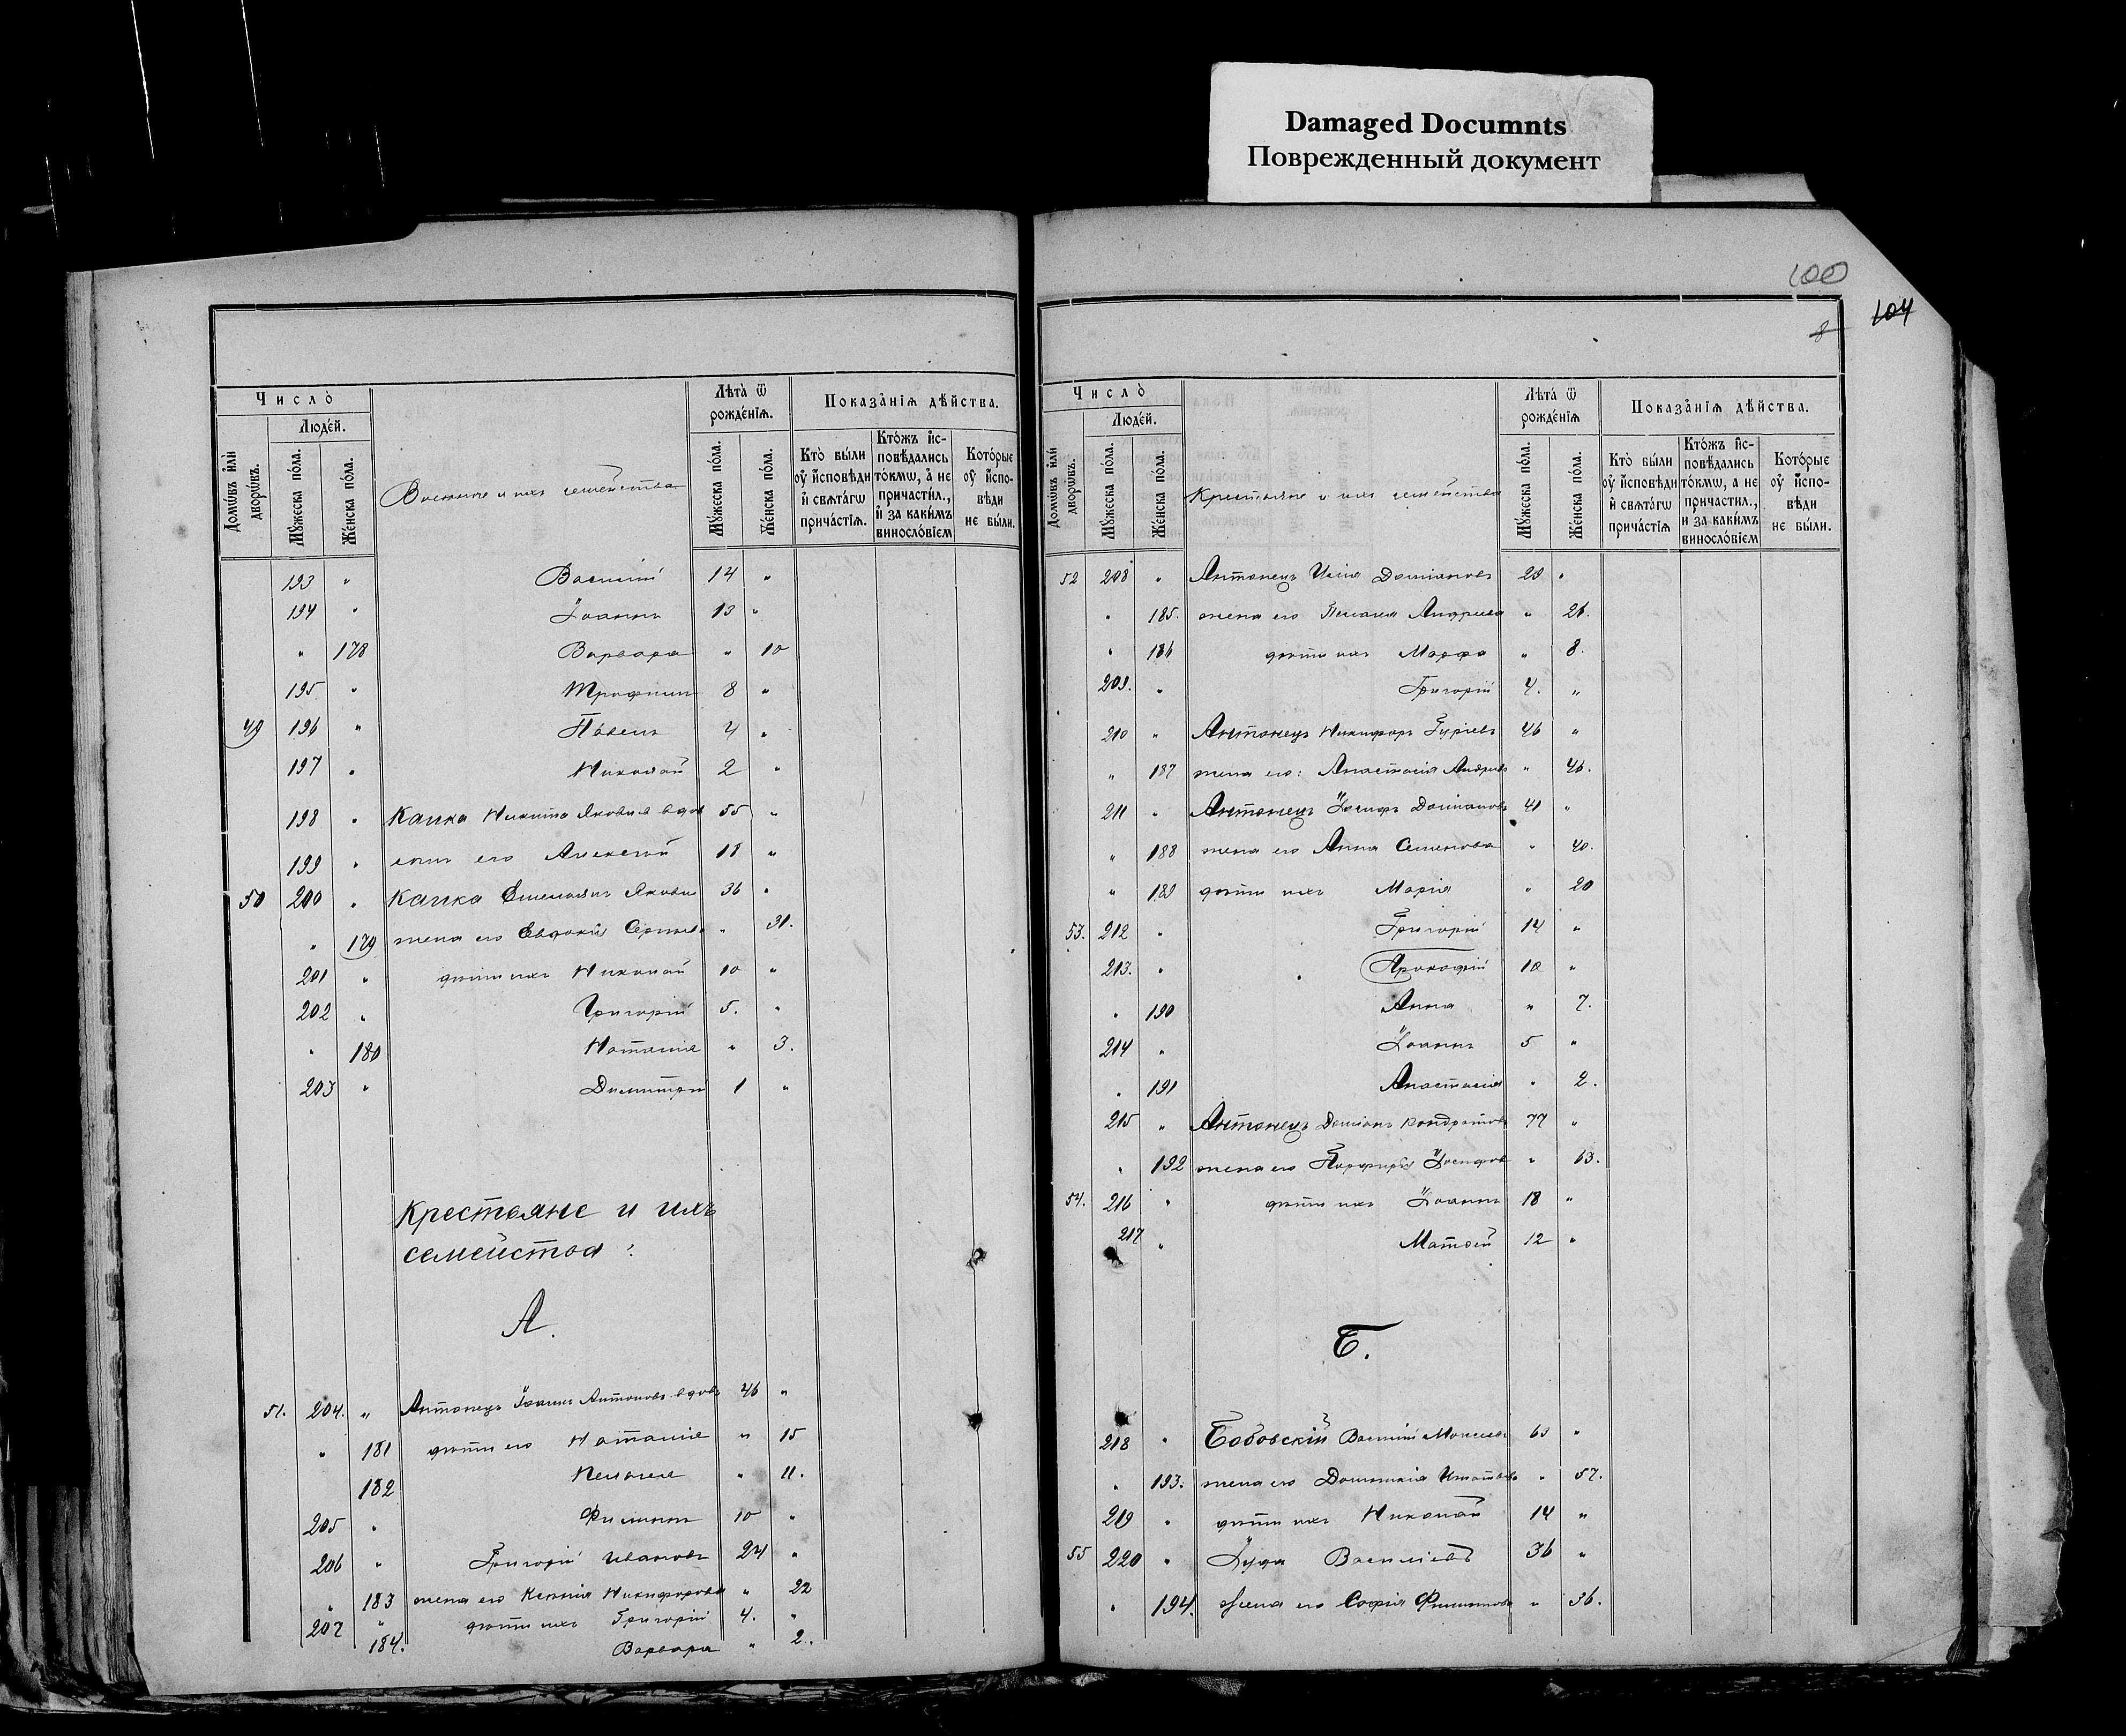 Damaged Documnts
Поврежденный документ
100
104
8
Число̀
Люде́й.
Домѡ́въ и҆лѝ дворѡ́въ.
Мꙋ́жеска по́ла.
Же́нска по́ла.
Военные и ихъ семейства
Лѣ́та ѿ рожде́нїѧ.
Мꙋ́жеска по́ла.
Же́нска по́ла.
Показа́нїѧ дѣ́йства.
Кто̀ бы́ли оу҆ и҆́сповѣди и҆ свѧта́гѡ прича́стїѧ.
Кто́жъ и҆с­повѣ́дались то́кмѡ, а҆ не причасти́л., и҆ за каки́мъ винословїем
Кото́рые оу҆ и҆́споvѣди не бы́ли.
193 " Василій 14 "
194 " Іоаннъ 13 "
" 178 Варвара " 10
195 " Трофимъ 8 "
49 196 " Павелъ 4 "
197 " Николай 2 "
198 " Капка Никита Яковлев вдов 55 "
199 " сынъ его Алексѣй 18 "
50 200 " Капка Емельянъ Яковл 36 "
" 179 жена его Евдокія Сергѣев " 31.
201 " дѣти ихъ Николай 10 "
202 " Григорій 5. "
" 180 Наталія " 3.
203 " Димитрій 1 "
Крестьяне и ихъ
семейства:
А.
51. 204. " Антонецъ Іоаннъ Антоновъ вдовъ 46 "
" 181 дѣти его Наталія " 15
182 Пелагея " 11.
205 " Филиппъ 10 "
206 " Григорій Ивановъ 24 "
" 183 жена его Ксенія Никифорова " 22
207 " дѣти ихъ Григорій 4. "
184. Варвара " 2.
Число̀
Люде́й.
Домѡ́въ и҆лѝ дворѡ́въ.
Мꙋ́жеска по́ла.
Же́нска по́ла.
Крестьяне и ихъ семейства
Лѣ́та ѿ рожде́нїѧ
Мꙋ́жеска по́ла.
Же́нска по́ла.
Показа́нїѧ дѣ́йства.
Кто̀ бы́ли оу҆ и҆́сповѣди и҆ свѧта́гѡ прича́стїѧ
Кто́жъ и҆с­повѣ́дались то́кмѡ, а не причасти́л., и за каки́мъ винословїем
Кото́рые оу҆ и҆́сповѣди не бы́ли.
52 208 " Антонецъ Илія Доміановъ 29 "
" 185. жена его Пелагея Андреева " 26.
" 186 дѣти ихъ Марфа " 8.
209. " Григорій 4. "
210 " Антонецъ Никифоръ Гуріевъ 46 "
" 187 жена его: Анастасія Андреев " 46.
211 " Антонецъ Іосифъ Доміановъ 41 "
" 188 жена его Анна Семенова " 40.
" 189 дѣти ихъ Марія " 20
53. 212 " Григорій 14 "
213. " Прокофій 10 "
" 190 Анна " 7.
214 " Іоаннъ 5 "
" 191 Анастасія " 2.
215 " Антонецъ Доміанъ Кондратовъ 77 "
" 192 жена его Іосифов " 63.
54. 216 " дѣти ихъ Іоаннъ 18 "
217 " Матвѣй 12 "
Б.
218 " Бобовскій Василій Моисеев 63 "
" 193. жена его Домникія " 57.
219 " дѣти ихъ Николай 14 "
55 220 " Іуда Василіевъ 36 "
" 194. Жена его Софія Филиппова " 36.